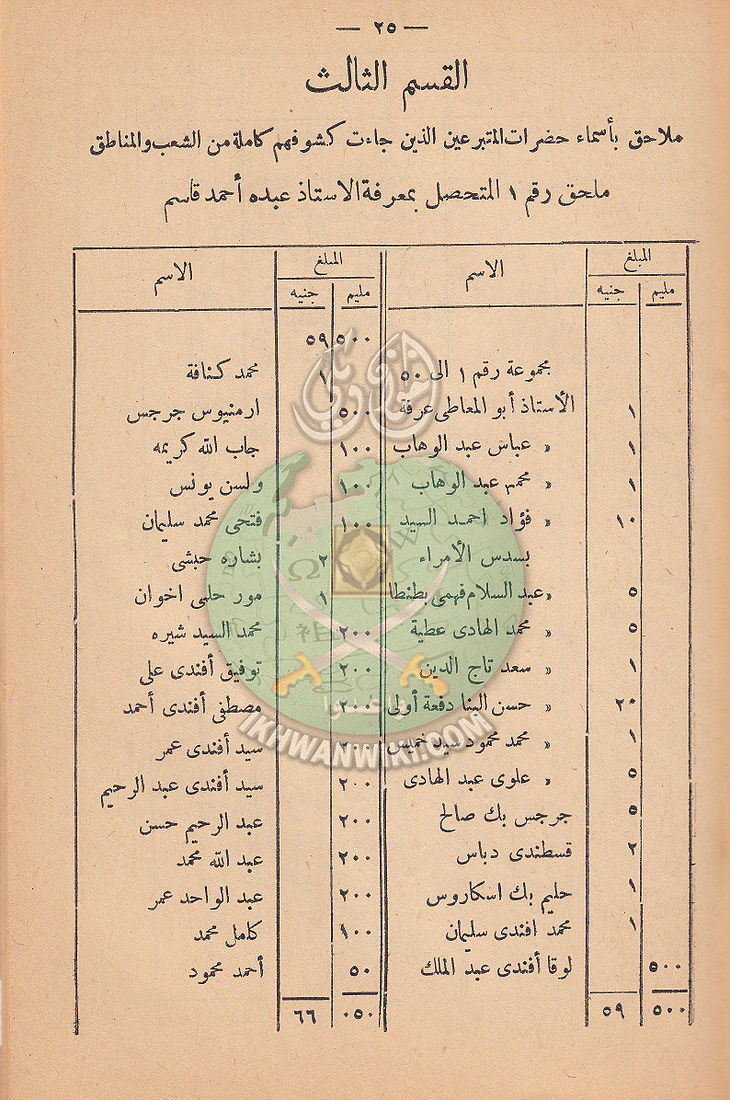 — ٢٥ —
القسم الثالث
ملاحق بأسماء حضرات المتبرعين الذين جاءت كشوفهم كاملة من الشعب والمناطق
ملحق رقم ١ المتحصل بمعرفة الاستاذ عبده أحمد قاسم
المبلغ الاسم
مليم جنيه
مجموعة رقم ١ الى ٥٠
١ الأستاذ أبو المعاطى عرفة
١ » عباس عبد الوهاب
١ » محمد عبد الوهاب
١٠ » فؤاد احمد السيد
بسدس الأمراء
٥ » عبد السلام فهمى بطنطا
٥ » محمد الهادى عطية
١ » سعد تاج الدين
٢٠ » حسن البنا دفعة أولى
١ » محمد محمود سيد خميس
٥ » علوى عبد الهادى
٥ جرجس بك صالح
٢ قسطندى دباس
١ حليم بك اسكاروس
١ محمد افندى سليمان
٥٠٠ لوقا أفندى عبد الملك
٥٠٠ ٥٩
المبلغ الاسم
مليم جنيه
٥٠٠ ٥٩
١ محمد كنافة
٥٠٠ ارمنيوس جرجس
١٠٠ جاب الله كريمه
١٠٠ ولسن يونس
١٠٠ فتحى محمد سليمان
٢ بشاره حبشى
١ مور حلمى اخوان
٢٠٠ محمد السيد شيره
٢٠٠ توفيق أفندى على
٢٠٠ مصطفى أفندى أحمد
٢٠٠ سيد أفندى عمر
٢٠٠ سيد أفندى عبد الرحيم
٢٠٠ عبد الرحيم حسن
٢٠٠ عبد الله محمد
٢٠٠ عبد الواحد عمر
١٠٠ كامل محمد
٥٠ أحمد محمود
٠٥٠ ٦٦
IKHWANWIKI.COM